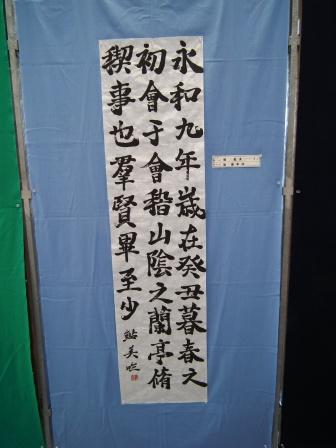 永和九年歲在癸丑暮春之
初會于會稽山陰之蘭亭脩
禊事也羣賢畢至少